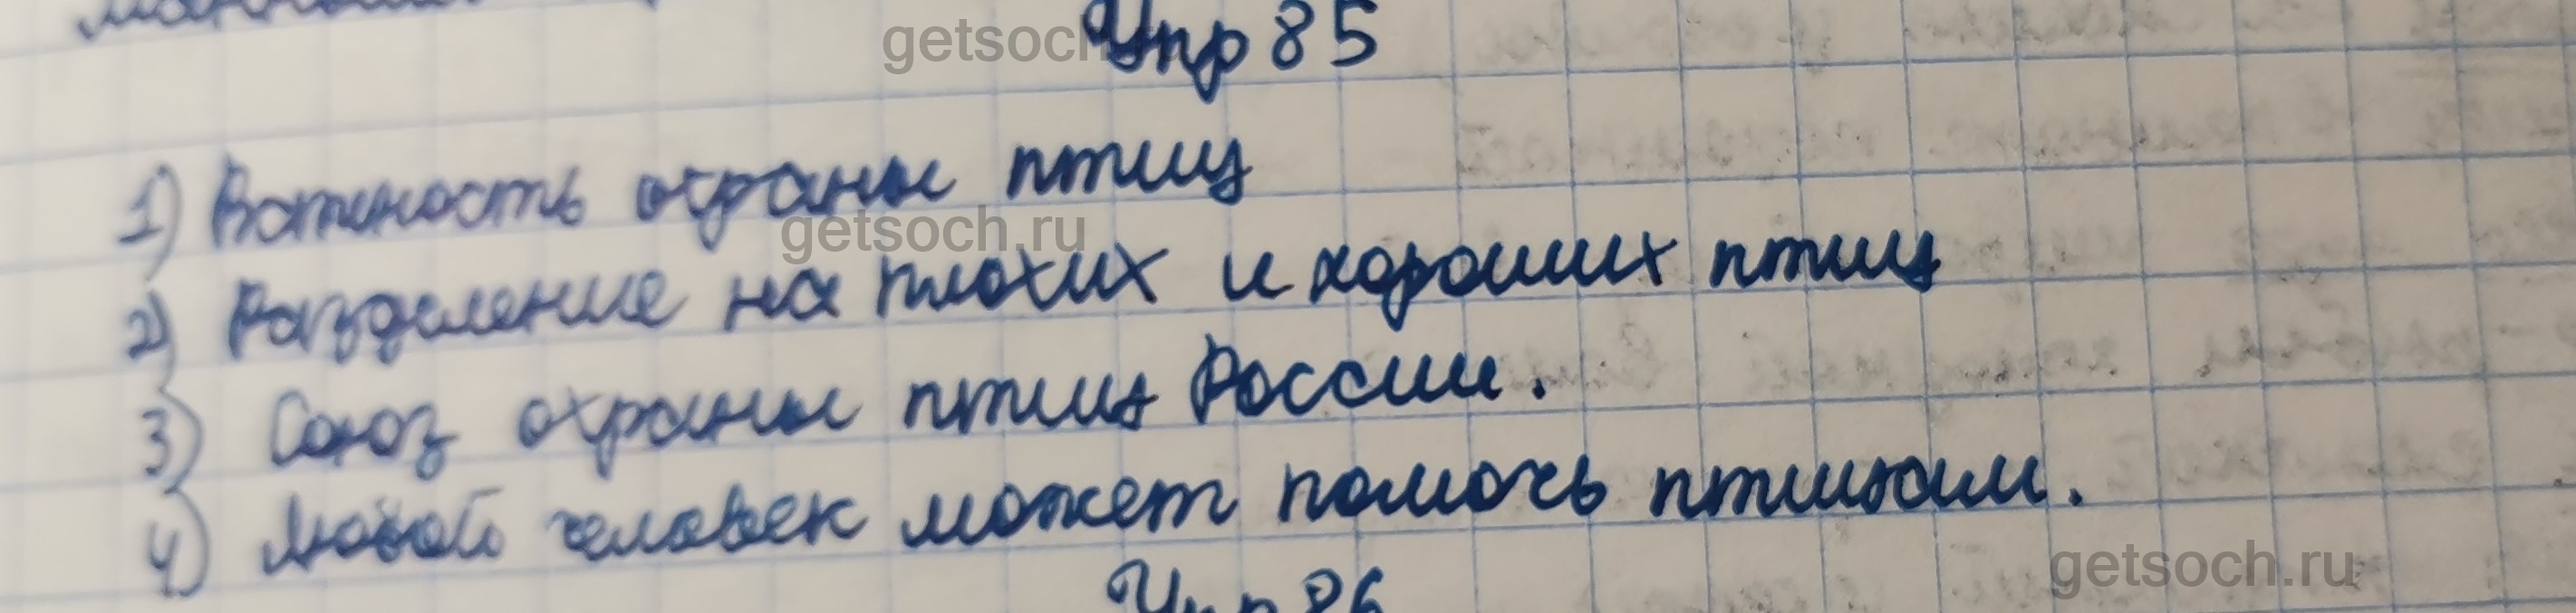 Упр 85
1) Важность охраны птиц
2) Разделение на плохих и хороших птиц
3) Союз охраны птиц России.
4) Любой человек может помочь птицам.
Упр 86
getsoch
getsoch.ru
getsoch.ru